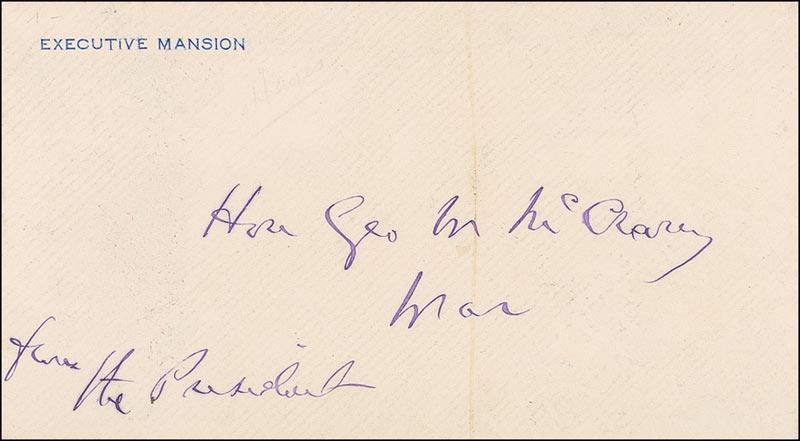 EXECUTIVE MANSION
Hayes
Hon Geo W McCrary
War
from the President